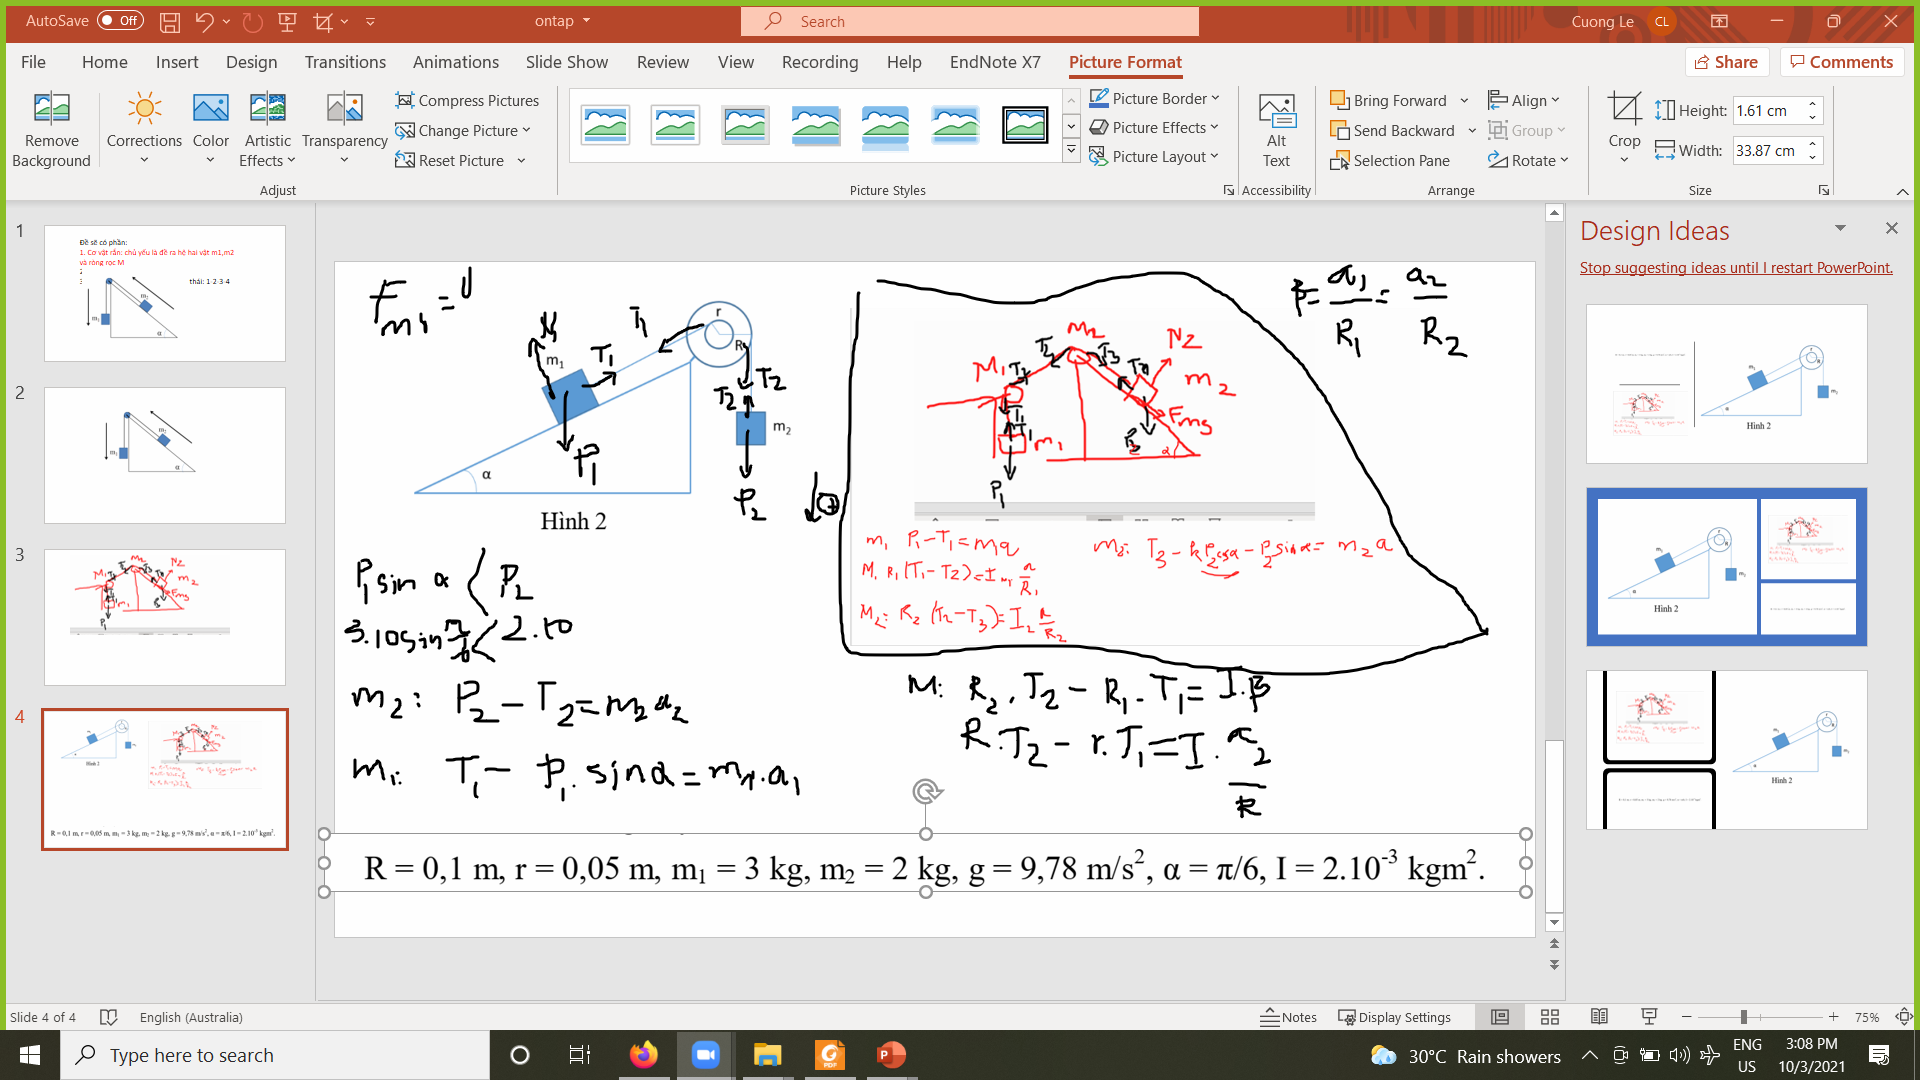 AutoSave Off
ontap
Search
Cuong Le
CL
File Home Insert Design Transitions Animations Slide Show Review View Recording Help EndNote X7 Picture Format
Share
Comments
Remove Background
Corrections
Color
Artistic Effects
Transparency
Compress Pictures
Change Picture
Reset Picture
Adjust
Picture Styles
Picture Border
Picture Effects
Picture Layout
Alt Text
Accessibility
Bring Forward
Send Backward
Selection Pane
Align
Group
Rotate
Arrange
Crop
Height: 1.61 cm
Width: 33.87 cm
Size
1
Đề sẽ có phần:
1. Cơ vật rắn: chủ yếu là đề ra hệ hai vật m1,m2
và ròng rọc M
thái: 1-2-3-4
2
3
4
R = 0,1 m, r = 0,05 m, m₁ = 3 kg, m₂ = 2 kg, g = 9,78 m/s², α = π/6, I = 2.10⁻³ kgm².
N₁
m₁
T₁
T₁
r
R
T₂
T₂
m₂
P₁
P₂
α
Hình 2
P₁ sin α < P₂
3.10 sin π/6 < 2.10
m₂: P₂ - T₂ = m₂ a₂
m₁: T₁ - P₁. sin α = m₁. a₁
β = a₁/R₁ = a₂/R₂
M₁
M₂
T₂
T₃
N2
m₂
Fms
m₁
P₁
α
m₁ P₁ - T₁ = ma
M₁ R₁ (T₁ - T₂) = I a/R₁
M₂: R₂ (T₂ - T₃) = I₂ a/R₂
m₂: T₃ - k P₂ cosα - P₂ sinα = m₂ a
M: R₂. T₂ - R₁. T₁ = I.β
R.T₂ - r.T₁ = I. a₂/R
R = 0,1 m, r = 0,05 m, m₁ = 3 kg, m₂ = 2 kg, g = 9,78 m/s², α = π/6, I = 2.10⁻³ kgm².
Design Ideas
Stop suggesting ideas until I restart PowerPoint.
Hình 2
Hình 2
Hình 2
Slide 4 of 4
English (Australia)
Notes
Display Settings
75%
Type here to search
30°C Rain showers
ENG
US
3:08 PM
10/3/2021